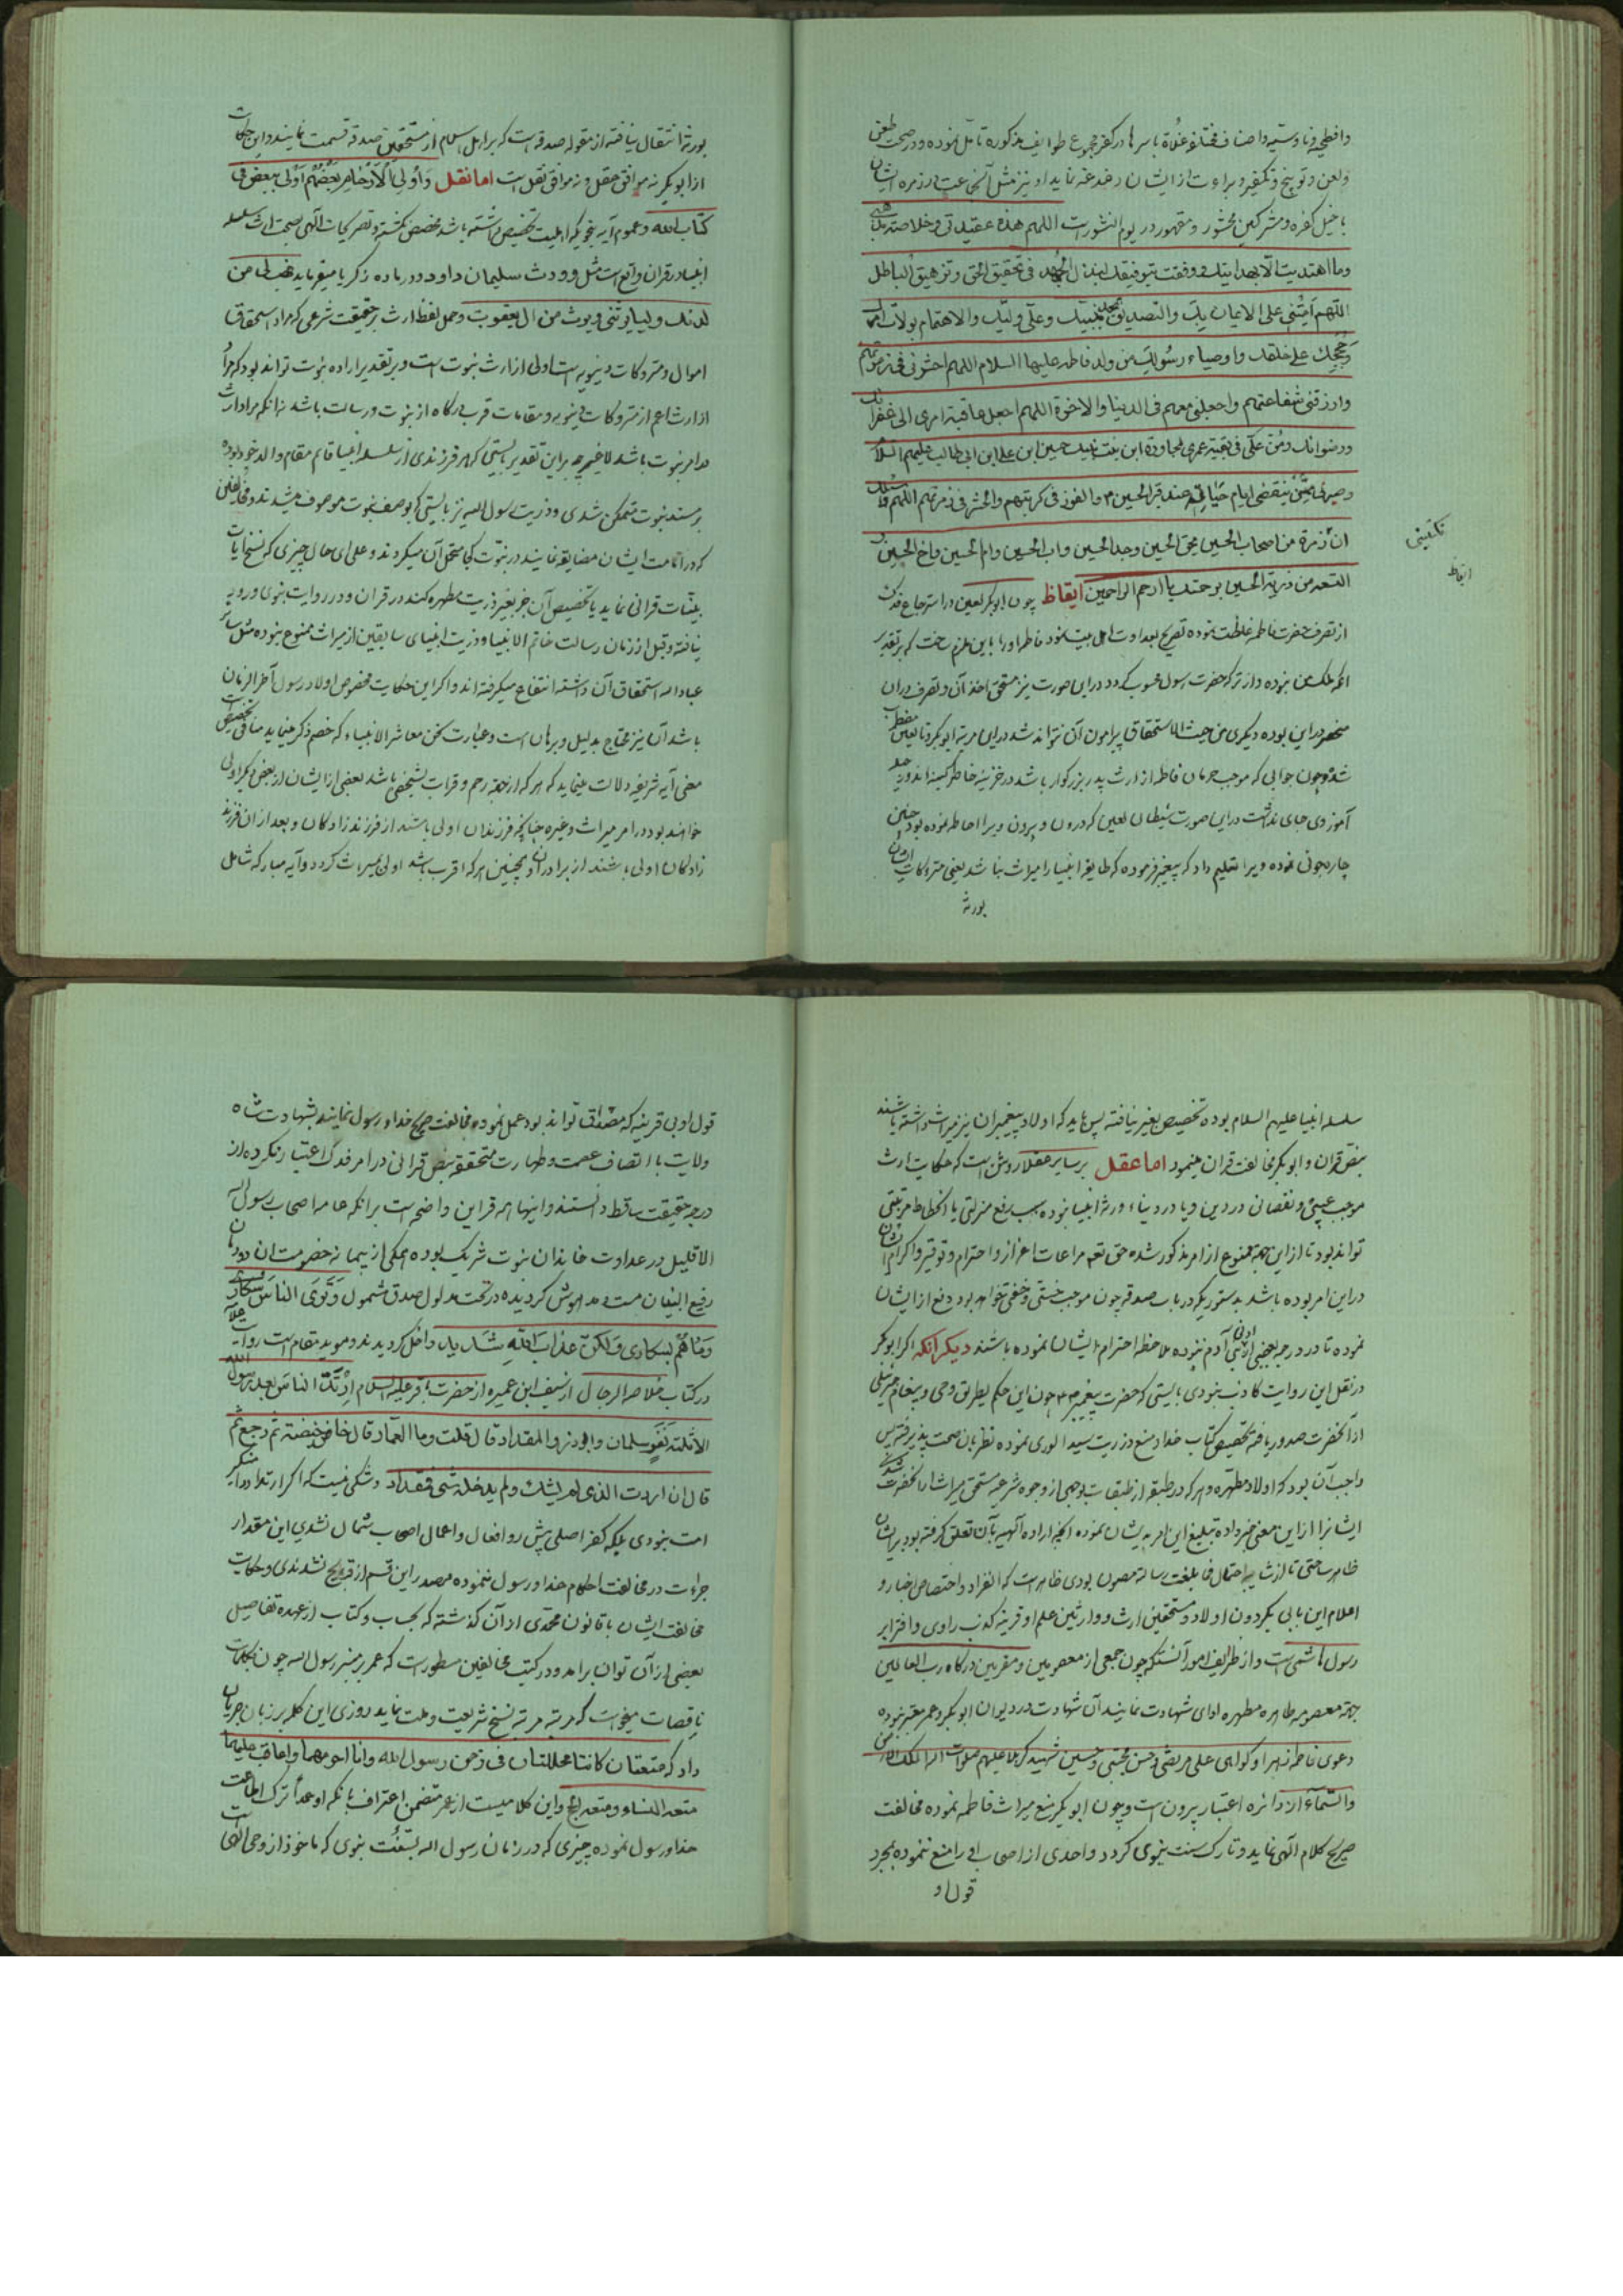 وافطحیه و ناوسیه و اصناف مختلفه غلاة باسرها در کفر مجموع طوایف مذکوره تامل نموده و در صحت طعن
ولعن و توبیخ و تکفیر و براءت از ایشان دغدغه نماید او نیز مثل آنجماعت در زمره ایشان
با خیل کفره و مشرکین محشور و مقهور در یوم النشور است اللهم هذه عقیدتی و خلاصة مذهبی
وما اهتدیت الا بهدایتک و وفقت بتوفیقک لبذل الجهد فی تحقیق الحق و تزهیق الباطل
اللهم امتنی علی الایمان بک والتصدیق بمحمد نبیک وعلی ولیک والاهتمام بولات امرک
وحججک علی خلقک واوصیاء رسولک من ولد فاطمة علیها السلام اللهم احشرنی فی زمرتهم
وارزقنی شفاعتهم واجعلنی معهم فی الدنیا والاخرة اللهم اجعل عاقبة امری الی غفرانک
ورضوانک ومن علی فی بقیة عمری لمجاورة ابن بنت نبیک حسین ابن علی ابن ابی طالب علیهم السلام
وصیرنی ممن ینقضی ایام حیاته عند قبر الحسین والفوز فی کربتهم والحشر فی زمرتهم اللهم اسئلک
ان زمرة من اصحاب الحسین بحق الحسین وجد الحسین واب الحسین وام الحسین واخ الحسین و
التسعة من ذریة الحسین برحمتک یا ارحم الراحمین ایقاظ چون ابوبکر لعین در استرجاع فدک
از تصرف حضرت فاطمه غلظت نموده تصریح بعداوت اهل بیت نمود فاطمه او را باین ملزم ساخت که بر تقدیر
انکه ملک من نبوده و از ترکه حضرت رسول محسوب گردد در این صورت نیز مستحق اخذ آن و تصرف در آن
منحصر در این بوده دیگری من حیث الاستحقاق پیرامون آن نتواند شد در این مرتبه ابوبکر و تابعین مضطرب
شده و چون جوابی که موجب حرمان فاطمه از ارث پدر بزرکوار باشد در خزینه خاطر کمینه اندوز حیله
آموزوی جای نداشت در این صورت شیطان لعین که درون و بیرون ویرا احاطه نموده بود چنین
چاره جوئی نموده ویرا تعلیم داد که پیغمبر فرموده که طایفه انبیا را میراث نباشد یعنی متروکات ایشان
بورثه
تکفینی
ایقاظ
بورثه انتقال نیافته از مقوله صدقه است که بر اهل اسلام از مستحقین صدقه قسمت نمایند و این حکایت
از ابوبکر نه موافق عقل و نه موافق نقل است اما نقل وَاُولِی الْاَرْحَامِ بَعْضُهُم اَوْلی بِبَعْضٍ فی
کتاب الله و عموم آیه بنحویکه اهلیت تخصیص داشته باشد مخصص نکشته و تصریحات الهی بصحت ارث سلسله
انبیا در قران واقع است مثل وورث سلیمان داود و در باده زکریا میفرماید فهب لی من
لدنک ولیا یرثنی ویرث من ال یعقوب و حمل لفظ ارث بر حقیقت شرعی که مراد استحقاق
اموال و متروکات دنیویه است اولی از ارث نبوت است و بر تقدیر اراده نبوت تواند بود که مراد
از ارث اعم از متروکات دنیویه و مقامات قرب درکاه از نبوت و رسالت باشد نه انکه مراد ارث
در امر نبوت باشد لاغیر چه بر این تقدیر بایستی که هر فرزندی از سلسله انبیا قایم مقام والد خود بوده
بر مسند نبوت متمکن شدی و ذریت رسول الله نیز بایستی که بوصف نبوت موصوف میشدند و مخالفین
که در امامت ایشان مضایقه نمایند در نبوت کجا متحمل آن میکردند و علی ای حال چیزی که نسخ ایات
بینات قرانی نماید یا تخصیص آن جز بغیر ذریت مطهره کند در قران و در روایت نبوی ورود
نیافته و قبل از زمان رسالت خاتم الانبیا و ذریت انبیای سابقین از میراث ممنوع نبوده مثل سائر
عباد الله استحقاق آن داشته انتفاع میکرفته اند و اکر این حکایت مخصوص اولاد رسول آخر الزمان
باشد آن نیز محتاج بدلیل و برهان است و عبارت نحن معاشر الانبیاء که خصم ذکر مینماید منافی تخصیص است
معنی آیه شریفه دلالت مینماید که هر که از جهة رحم و قرابت بشخصی باشد بعضی از ایشان از بعض دیگر اولی
خواهند بود در امر میراث و غیره چنانچه فرزندان اولی باشند از فرزند زادکان و بعد از ان فرزند
زادکان اولی باشند از برادران و همچنین هر که اقرب باشد اولی بمیراث کردد و آیه مبارکه شامل
سلسله انبیا علیهم السلام بوده تخصیص بغیر نیافته پس باید که اولاد پیغمبران نیز میراث داشته باشند
بنص قران و ابوبکر مخالفت قران مینمود اما عقل بر سایر عقلا روشن است که حکایت ارث
موجب عیبی و نقصانی در دین و یا در دنیا ورثه انبیا نبوده سبب رفع منزلتی یا انحطاط مرتبتی
تواند بود تا از این جهة ممنوع از امر مذکور شده حق تعم مراعات اعزاز و احترام و توقیر و اکرام ایشان
در این امر بوده باشد بدستوریکه در باب صدقه چون موجب خستی و خفتی تواند بود دفع از ایشان
نموده تا در درجه بعضی از ادنی بنی آدم نبوده ملاحظه احترام ایشان نموده باشند دیکر آنکه اکر ابوبکر
در نقل این روایت کاذب نبودی بایستی که حضرت پیغمبر ص چون این حکم بطریق وحی و پیغام جبرئیلی
از آنحضرت صدور یافته تخصیص کتاب خدا و منع ذریت سید الوری نموده نظر بآن صحت پذیرفته پس
واجب آن بود که اولاد مطهره و هر که در طبقه از طبقات بوجهی از وجوه شرعیه مستحق میراث آنحضرت شدی
ایشانرا از این معنی خبر داده تبلیغ این امر بایشان نموده انچه اراده الهیه بآن تعلق کرفته بود بر ایشان
ظاهر ساختی تا از شایبه احتمال مخالفت رساله مصون بودی ظاهر است که انفراد و اختصاص اخبار و
اعلام این بابی بکر دون اولاد و مستحقین ارث و وارثین علم او قرینه کذب راوی و افترا بر
رسول هاشمی است و از ظرایف امور آنستکه چون جمعی از معصومین و مقربین درکاه رب العالمین
جهة معصومه طاهره مطهره ادای شهادت نمایند آن شهادت در دیوان ابوبکر و عمر معتبر نبوده
دعوی فاطمه زهرا و کواهی علی مرتضی و حسن مجتبی و حسین شهید کربلا علیهم صلوات الله الملک الارض
والسماء از دائره اعتبار بیرون است و چون ابوبکر منع میراث فاطمه نموده مخالفت
صریح کلام الهی نماید و تارک سنت نبوی کردد واحدی از اصحاب او را منع ننموده بمجرد
قول او
قول او بی قرینه که مصدق تواند بود عمل نموده مخالفت صریح خدا و رسول نمایند بشهادت شاه
ولایت با اتصاف عصمت و طهارت متحققه بنص قرانی در امر فدک اعتبار نکرده از
درجه حقیقت ساقط دانستند و اینها همه قراین واضحه است برانکه عامه اصحاب رسول الله
الا قلیل در عداوت خاندان نبوت شریک بوده همکی از پیمانه خصومت ان دودمان
رفیع البنیان مست و مدهوش کردیده در تحت مدلول صدق مشمول وَتَرَی الناسَ سُکاری
وَمَا هُمْ بِسُکاری وَلکِنَّ عَذابَ اللهِ شَدید داخل کردیدند و موید مقام است روایت علامه
در کتاب خلاصة الرجال از سیف ابن عمیره از حضرت باقر علیه السلام اِرْتَدَّ الناسَ بعد رسول الله
الا ثلثة نَفَرٍ سلمان وابوذر والمقداد قال قلت وما العمار قال خاض خیضة ثم رجع ثم
قال ان اردت الذی لم یشک ولم یدخله شی فمقداد و شکی نیست که اکر ارتداد در این منکر
امت نبودی بلکه کفر اصلی پیش رو افعال و اعمال اصحاب شمال نشدی این مقدار
جرات در مخالفت احکام خدا و رسول ننموده مصدر این قسم از قبایح نشدندی و حکایت
مخالفت ایشان با قانون محمدی از آن کذشته که بحساب و کتاب از عهده تفاصیل
بعضی از آن توان برامد و در کتب مخالفین مسطور است که عمر بر منبر رسول الله چون بکلمات
ناقصات میخواست که مرتبه مرتبه نسخ شریعت و ملت نماید روزی این کلمه بر زبان جریان
داد که متعتان کانتا محللتان فی زمن رسول الله وانا احرمهما واعاقب علیهما
متعة النساء و متعة الحج و این کلامیست از عمر متضمن اعتراف بانکه او عمداً ترک اطاعت
خدا و رسول نموده چیزی که در زمان رسول الله بسنت نبوی که ماخوذ از وحی الهی است